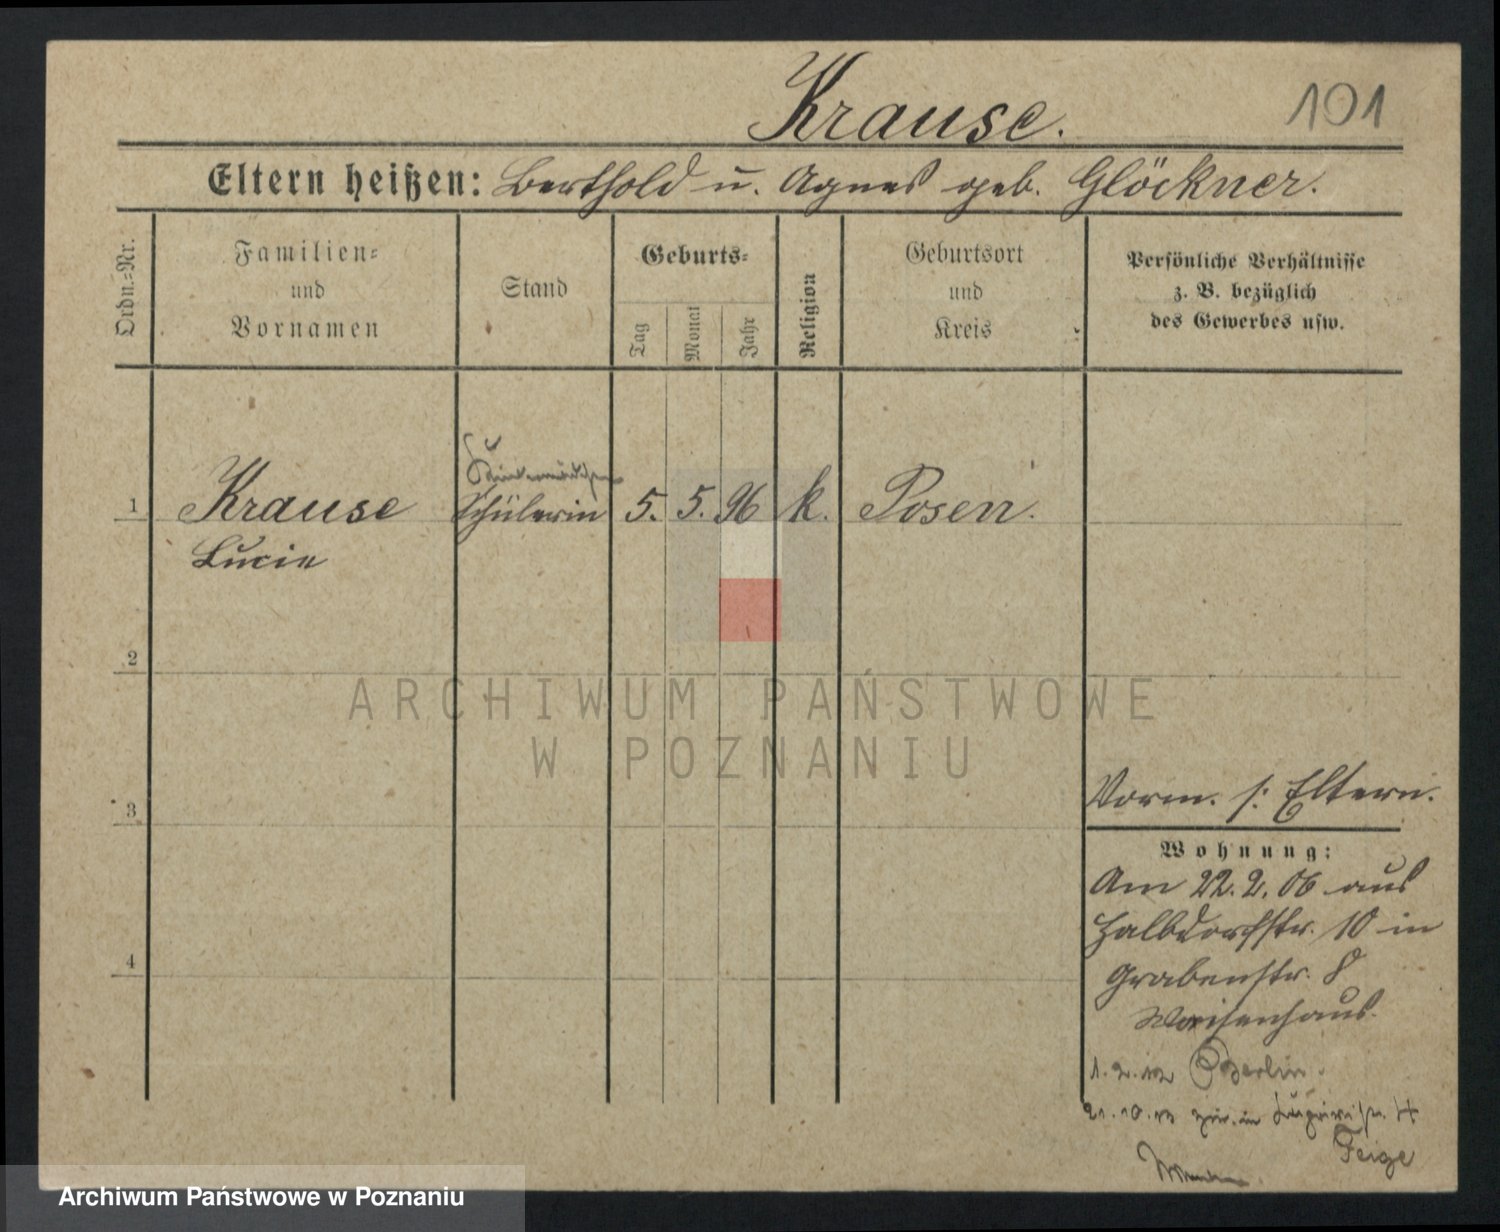 Krause.
101
Eltern heißen: Berthold u. Agnes geb. Glöckner.
Ordn.-Nr.
Familien-
und
Vornamen
Stand
Geburts-
Tag
Monat
Jahr
Religion
Geburtsort
und
Kreis
Persönliche Verhältnisse
z. B. bezüglich
des Gewerbes usw.
1
Krause
Schülerin
5. 5. 96
k.
Posen.
Lucie
2
ARCHIWUM PAŃSTWOWE
W POZNANIU
3
Vorm. s: Eltern.
Wohnung:
Am 22. 2. 06 aus
Halbdorfstr. 10 in
4
Grabenstr. 8
Waisenhaus.
1. 2. 12 Berlin.
21. 10. 13
Feige
Archiwum Państwowe w Poznaniu